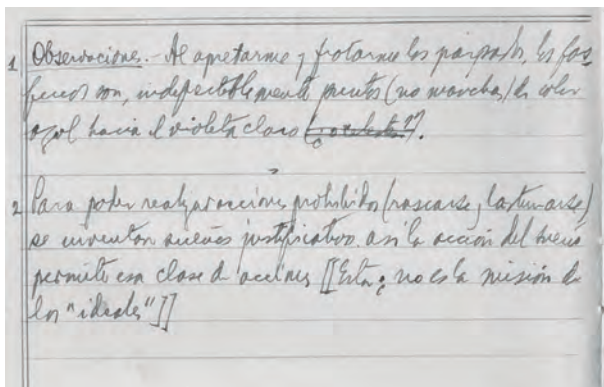 1 Observaciones.- Al apretarme y frotarme los párpados, los fos
fucos son, indefectiblemente puntos (no manchas) de color
azul hacia el violeta claro
2 Para poder realizar acciones prohibidas (rascarse, lastimarse)
se inventan sueños justificativos. así la acción del sueño
permite esa clase de acciones [[Esta ¿ no es la misión de
los "ideales"]]